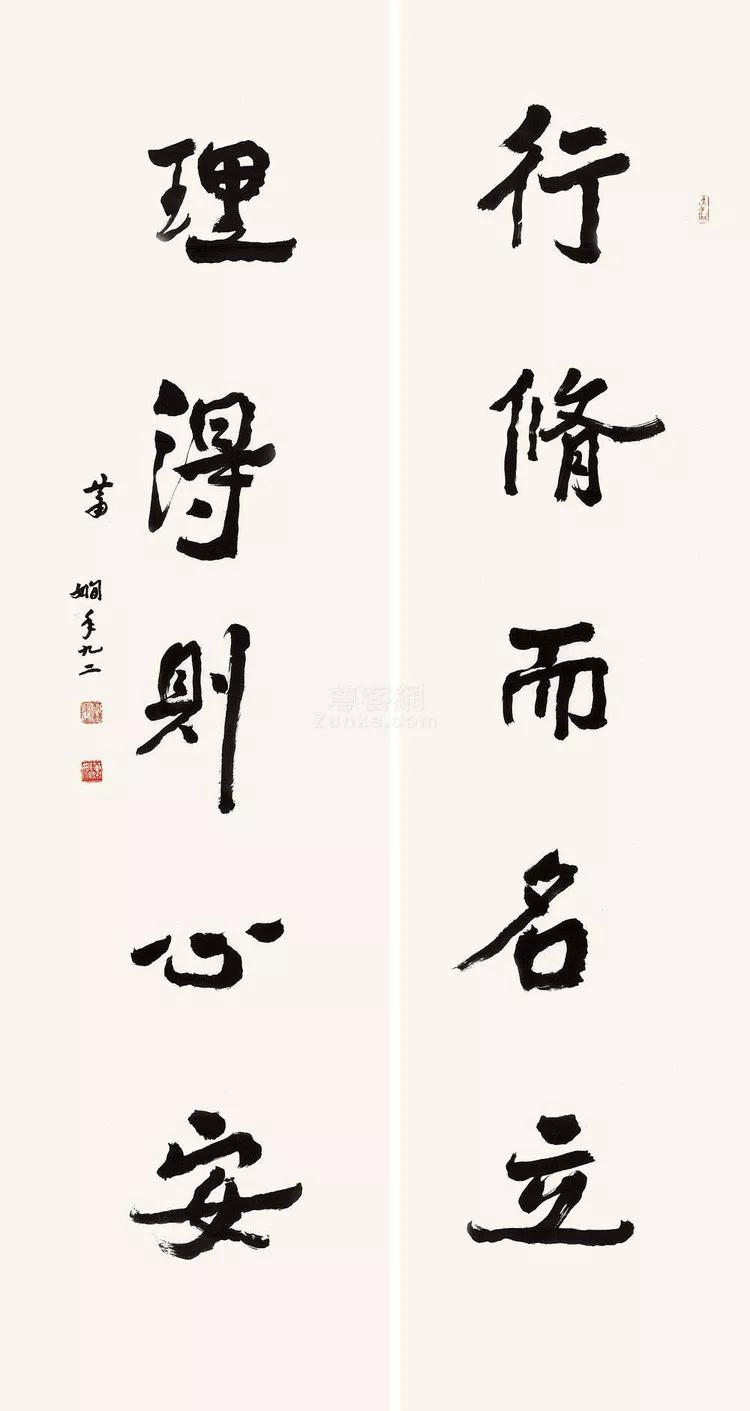 行脩而名立
理得則心安
蕭嫻年九二
尊客網
Zunka.com